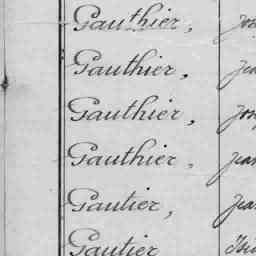 Gauthier,
Gauthier,
Gauthier,
Gauthier,
Gautier,
Gautier